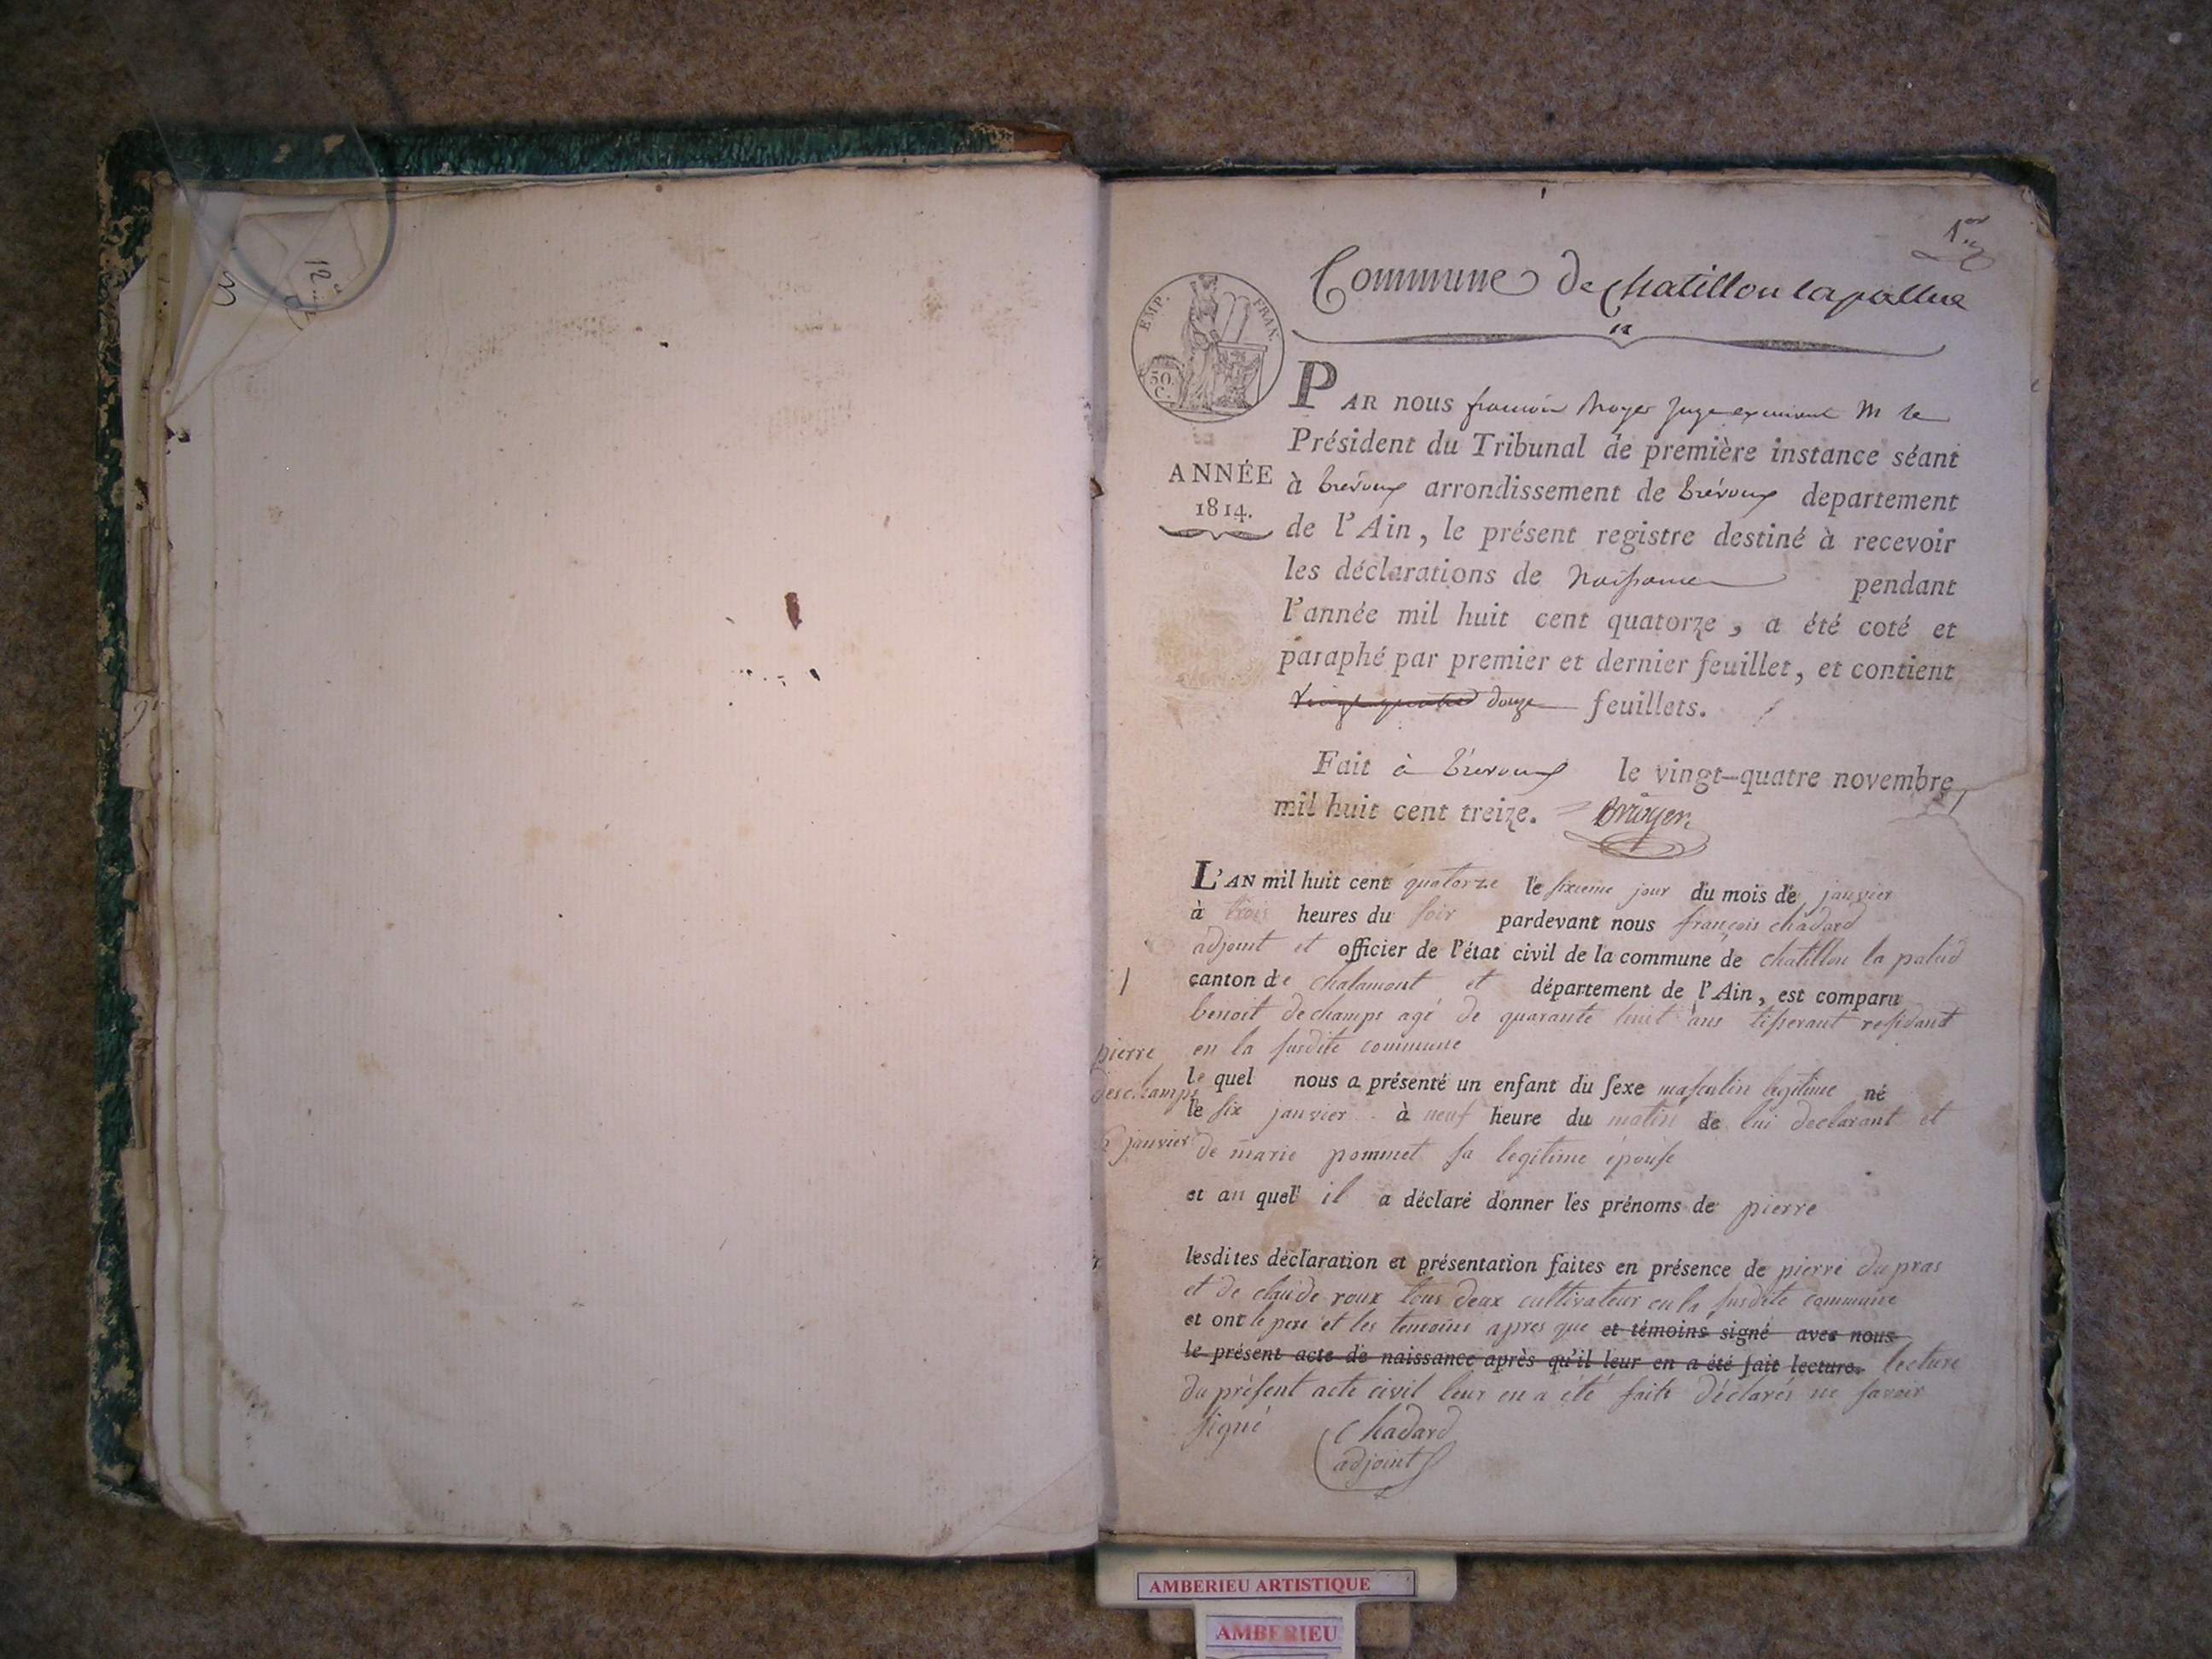 12.
3
1er
Commune de chatillon lapallue
EMP. FRAN.
50
C.
PAR nous françois Juge M le
Président du Tribunal de première instance séant
ANNÉE
1814.
à trévoux arrondissement de trévoux departement
de l'Ain, le présent registre destiné à recevoir
les déclarations de Naissance pendant
l'année mil huit cent quatorze, a été coté et
paraphé par premier et dernier feuillet, et contient
vingt-quatre douze feuillets.
Fait à trevoux le vingt-quatre novembre
mil huit cent treize.
L'AN mil huit cent quatorze le sixieme jour du mois de janvier
à trois heures du soir pardevant nous françois chadard
adjoint et officier de l'état civil de la commune de chatillon la palud
canton de chalamont et département de l'Ain, est comparu
1
benoit dechamps agé de quarante huit ans tisserant residant
en la susdite commune
pierre
deschamps
6 janvier
le quel nous a présenté un enfant du sexe masculin legitime né
le six janvier à neuf heure du matin de lui declarant et
de marie pommet sa legitime épouse
et au quel il a déclaré donner les prénoms de pierre
lesdites déclaration et présentation faites en présence de pierre dupras
et de claude roux tous deux cultivateur en la susdite commune
et ont le pere et les temoins apres que et témoins signé avec nous
le présent acte de naissance après qu'il leur en a été fait lecture. lecture
du présent acte civil leur en a été faite déclarés ne savoir
signé
Chadard
adjoint
AMBERIEU ARTISTIQUE
AMBERIEU